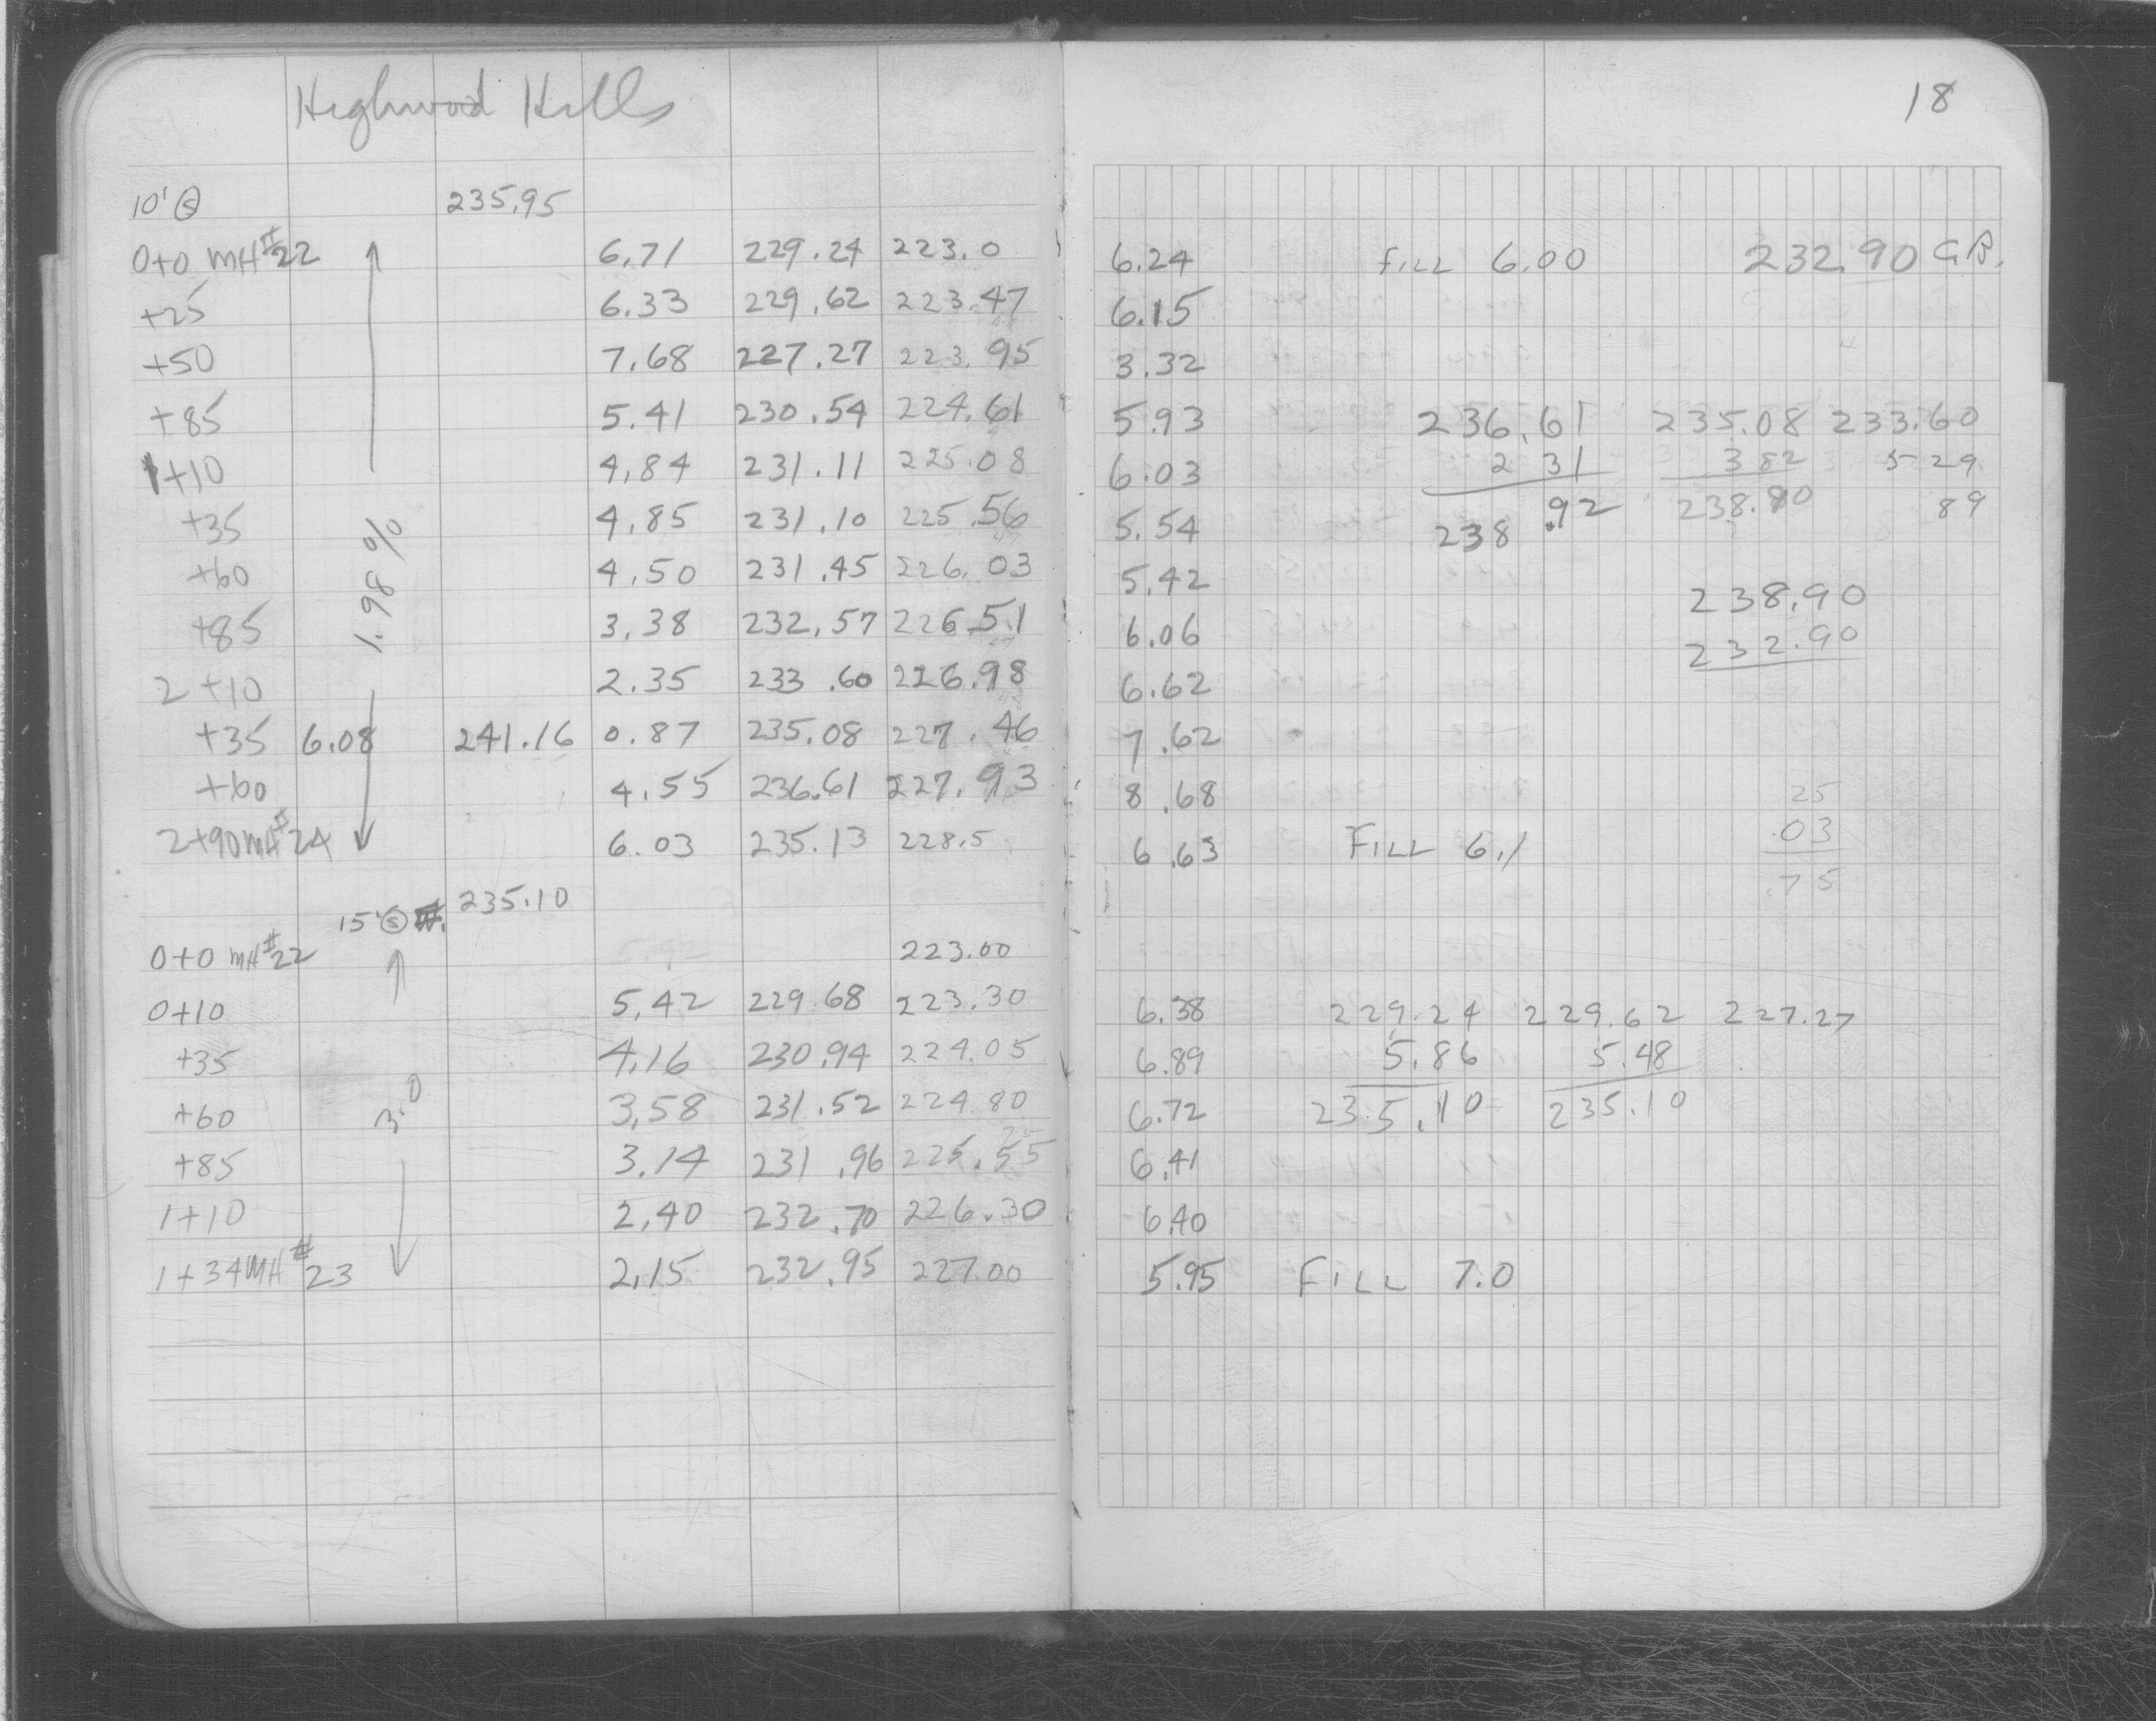 Highwood Hills
18
10' Ⓢ 235.95
0+0 MH#22 6.71 229.24 223.0 6.24 FILL 6.00 232.90 G.B.
+25 6.33 229.62 223.47 6.15
+50 7.68 227.27 223.95 3.32
+85 5.41 230.54 224.61 5.93 236.61 235.08 233.60
1+10 4.84 231.11 225.08 6.03 2 31 3 82 5 29
+35 4.85 231.10 225.56 5.54 238.92 238.90 89
1.98%
+60 4.50 231.45 226.03 5.42 238.90
+85 3.38 232.57 226.51 6.06 232.90
2+10 2.35 233.60 226.98 6.62
+35 6.08 241.16 0.87 235.08 227.46 7.62
+60 4.55 236.61 227.93 8.68 25
2+90 MH#24 6.03 235.13 228.5 6.63 FILL 6.1 .03
.75
15' Ⓢ 235.10
0+0 MH#22 223.00
0+10 5.42 229.68 223.30 6.38 229.24 229.62 227.27
+35 4.16 230.94 224.05 6.89 5.86 5.48
3.0
+60 3.58 231.52 224.80 6.72 235.10 235.10
+85 3.14 231.96 225.55 6.41
1+10 2.40 232.70 226.30 6.40
1+34 MH#23 2.15 232.95 227.00 5.95 FILL 7.0